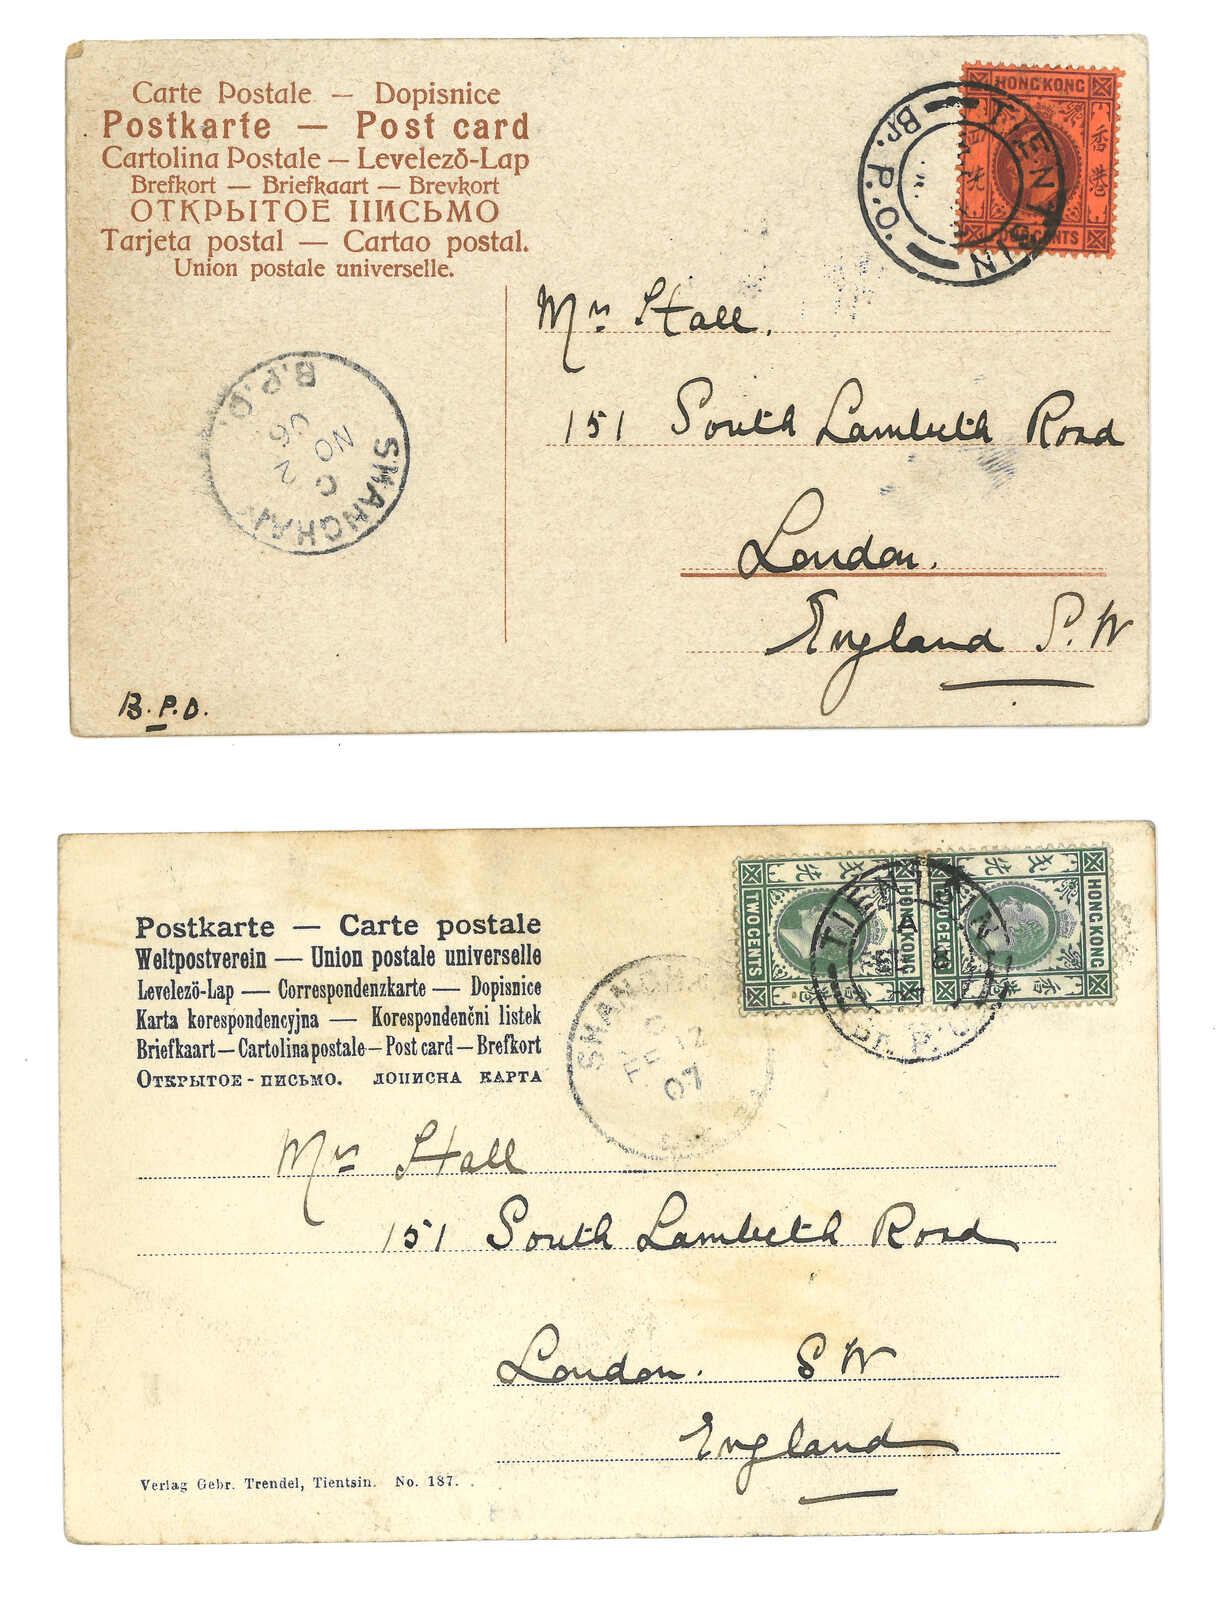 Carte Postale — Dopisnice
Postkarte — Post card
Cartolina Postale — Levelező-Lap
Brefkort — Briefkaart — Brevkort
ОТКРЫТОЕ ПИСЬМО
Tarjeta postal — Cartao postal.
Union postale universelle.
HONG KONG
香港
FOUR CENTS
TIENTSIN
Br. P.O.
Mrs Hall.
151 South Lambeth Road
London.
England S.W
SHANGHAI
B.P.O.
C
NO 2
06
B.P.O.
Postkarte — Carte postale
Weltpostverein — Union postale universelle
Levelező-Lap — Correspondenzkarte — Dopisnice
Karta korespondencyjna — Korespondenčni listek
Briefkaart — Cartolina postale — Post card — Brefkort
ОТКРЫТОЕ - ПИСЬМО. ДОПИСНА КАРТА
TWO CENTS
HONG KONG
TWO CENTS
HONG KONG
香港
TIENTSIN
Br. P.O.
SHANGHAI
C
FE 12
07
Mrs Hall
151 South Lambeth Road
London. S W
England
Verlag Gebr. Trendel, Tientsin. No. 187.